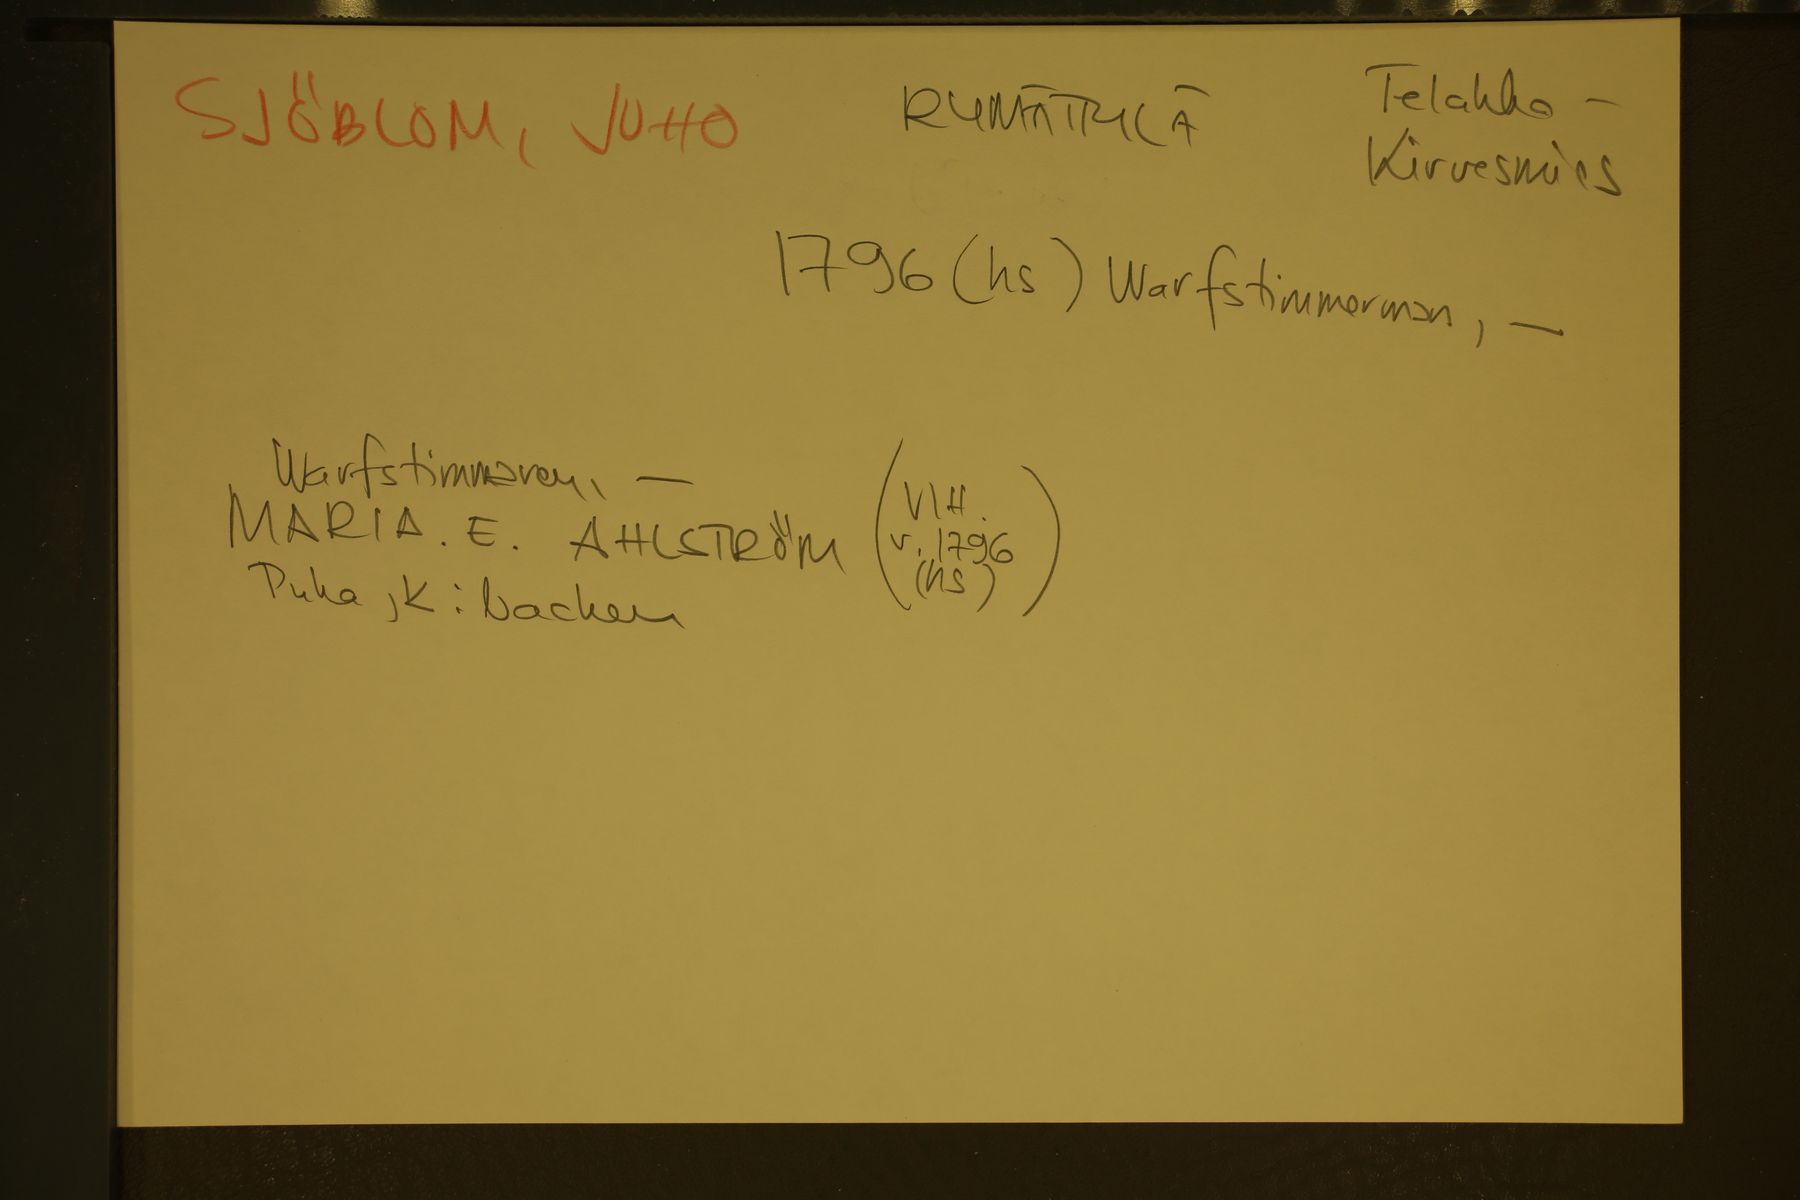 SJÖBLOM, JUHO RYMÄTTYLÄ Telakka-
Kirvesmies
1796 (hs) Warfstimmerman, —
Warfstimmeren, —
MARIA. E. AHLSTRÖM (VIH.
v. 1796
(hs))
Piika, K:backen